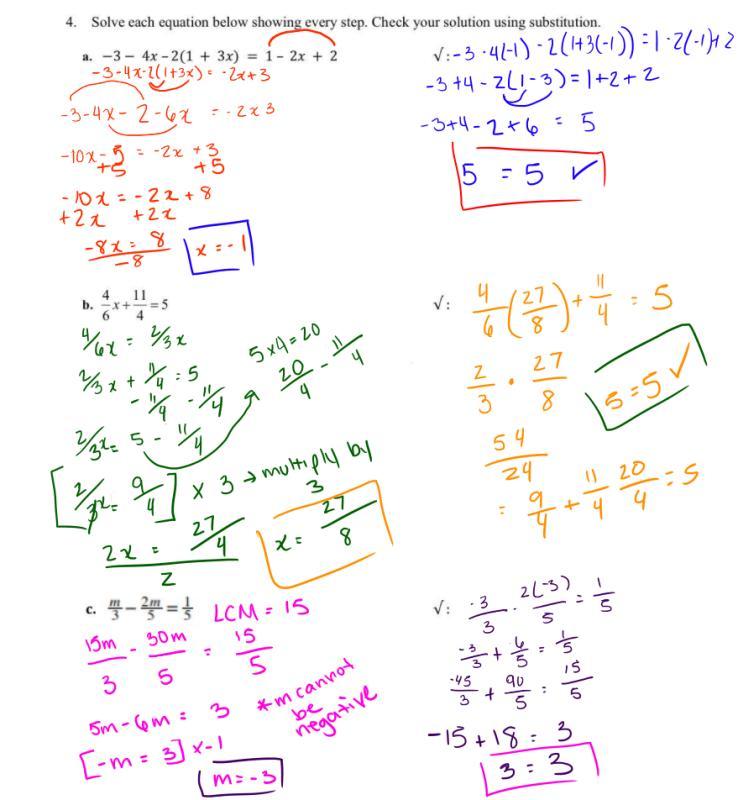 4. Solve each equation below showing every step. Check your solution using substitution.
a. −3 − 4x −2(1 + 3x) = 1 − 2x + 2
-3-4x-2(1+3x) = -2x+3
-3-4x-2-6x = -2x3
-10x-5 = -2x+3
+5 +5
-10x = -2x+8
+2x +2x
-8x = 8
-8
x = -1
√: -3·4(-1)-2(1+3(-1)) = 1·2(-1)+2
-3+4-2(1-3)=1+2+2
-3+4-2+6 = 5
5 = 5 ✓
b. 4/6 x + 11/4 = 5
4/6x = 2/3x
2/3x + 11/4 = 5
- 11/4 - 11/4
5x4=20
20/4 - 11/4
2/3x = 5 - 11/4
[2/3x = 9/4] x 3 → multiply by 3
2x = 27/4
2
x = 27/8
√: 4/6 (27/8) + 11/4 = 5
2/3 · 27/8
5=5 ✓
54/24
= 9/4 + 11/4 20/4 = 5
c. m/3 − 2m/5 = 1/5 LCM = 15
15m/3 - 30m/5 = 15/5
5m-6m = 3 *m cannot be negative
[-m = 3] x-1
m = -3
√: -3/3 - 2(-3)/5 = 1/5
-3/3 + 6/5 = 1/5
-45/3 + 90/5 = 15/5
-15+18 = 3
3 = 3